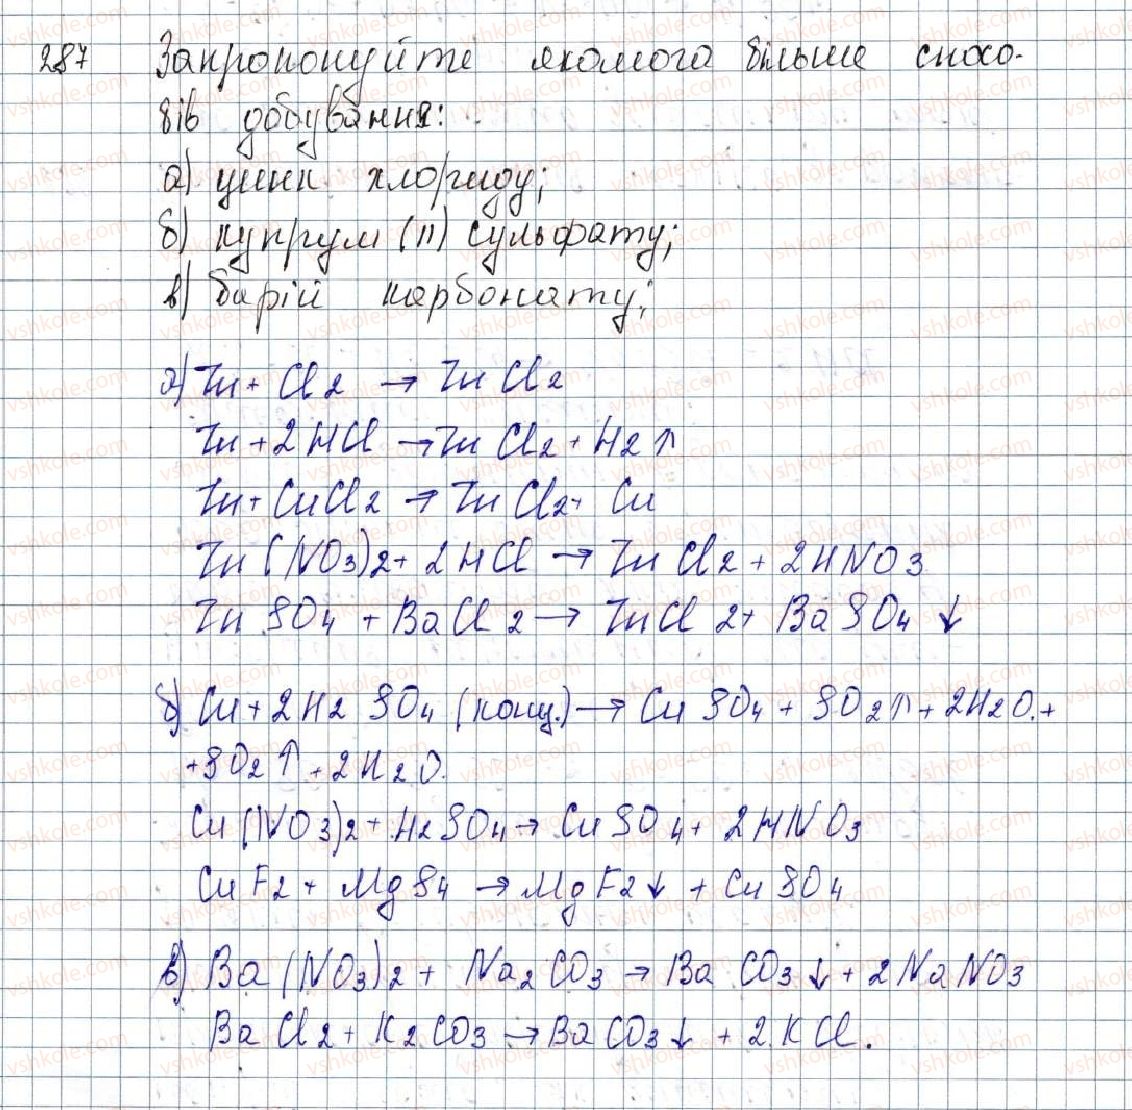 287 Запропонуйте якомога більше спосо-
бів добування:
а) цинк хлориду;
б) купрум (II) сульфату;
в) барій карбонату;
а) Zn + Cl2 → ZnCl2
Zn + 2HCl → ZnCl2 + H2↑
Zn + CuCl2 → ZnCl2 + Cu
Zn(NO3)2 + 2HCl → ZnCl2 + 2HNO3
ZnSO4 + BaCl2 → ZnCl2 + BaSO4↓
б) Cu + 2H2SO4 (конц.) → CuSO4 + SO2↑ + 2H2O. +
+ SO2↑ + 2H2O.
Cu(NO3)2 + H2SO4 → CuSO4 + 2HNO3
CuF2 + MgS4 → MgF2↓ + CuSO4
в) Ba(NO3)2 + Na2CO3 → BaCO3↓ + 2NaNO3
BaCl2 + K2CO3 → BaCO3↓ + 2KCl.